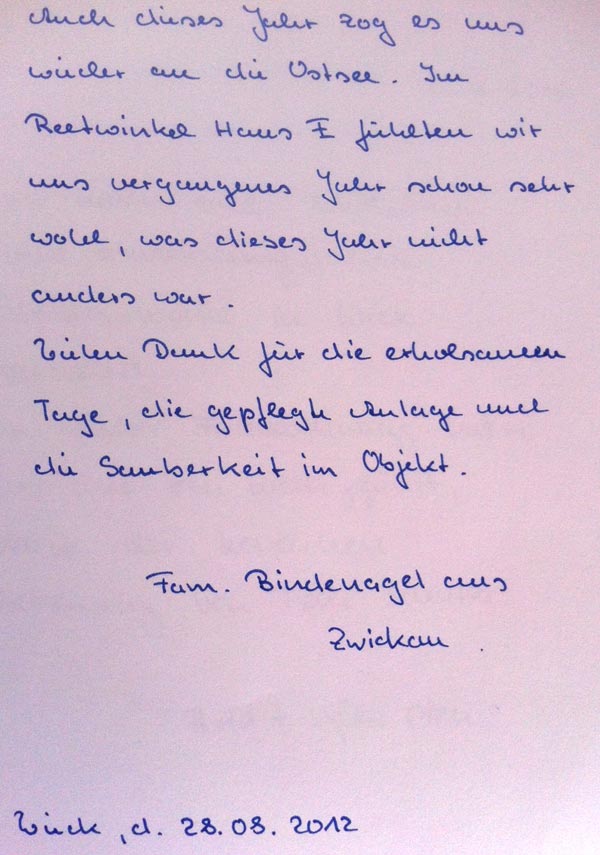 Auch dieses Jahr zog es uns
wieder an die Ostsee. Im
Reetwinkel Haus E fühlten wir
uns vergangenes Jahr schon sehr
wohl, was dieses Jahr nicht
anders war.
Vielen Dank für die erholsamen
Tage, die gepflegte Anlage und
die Sauberkeit im Objekt.
Fam. Bindenagel aus
Zwickau.
Wieck, d. 28.08.2012